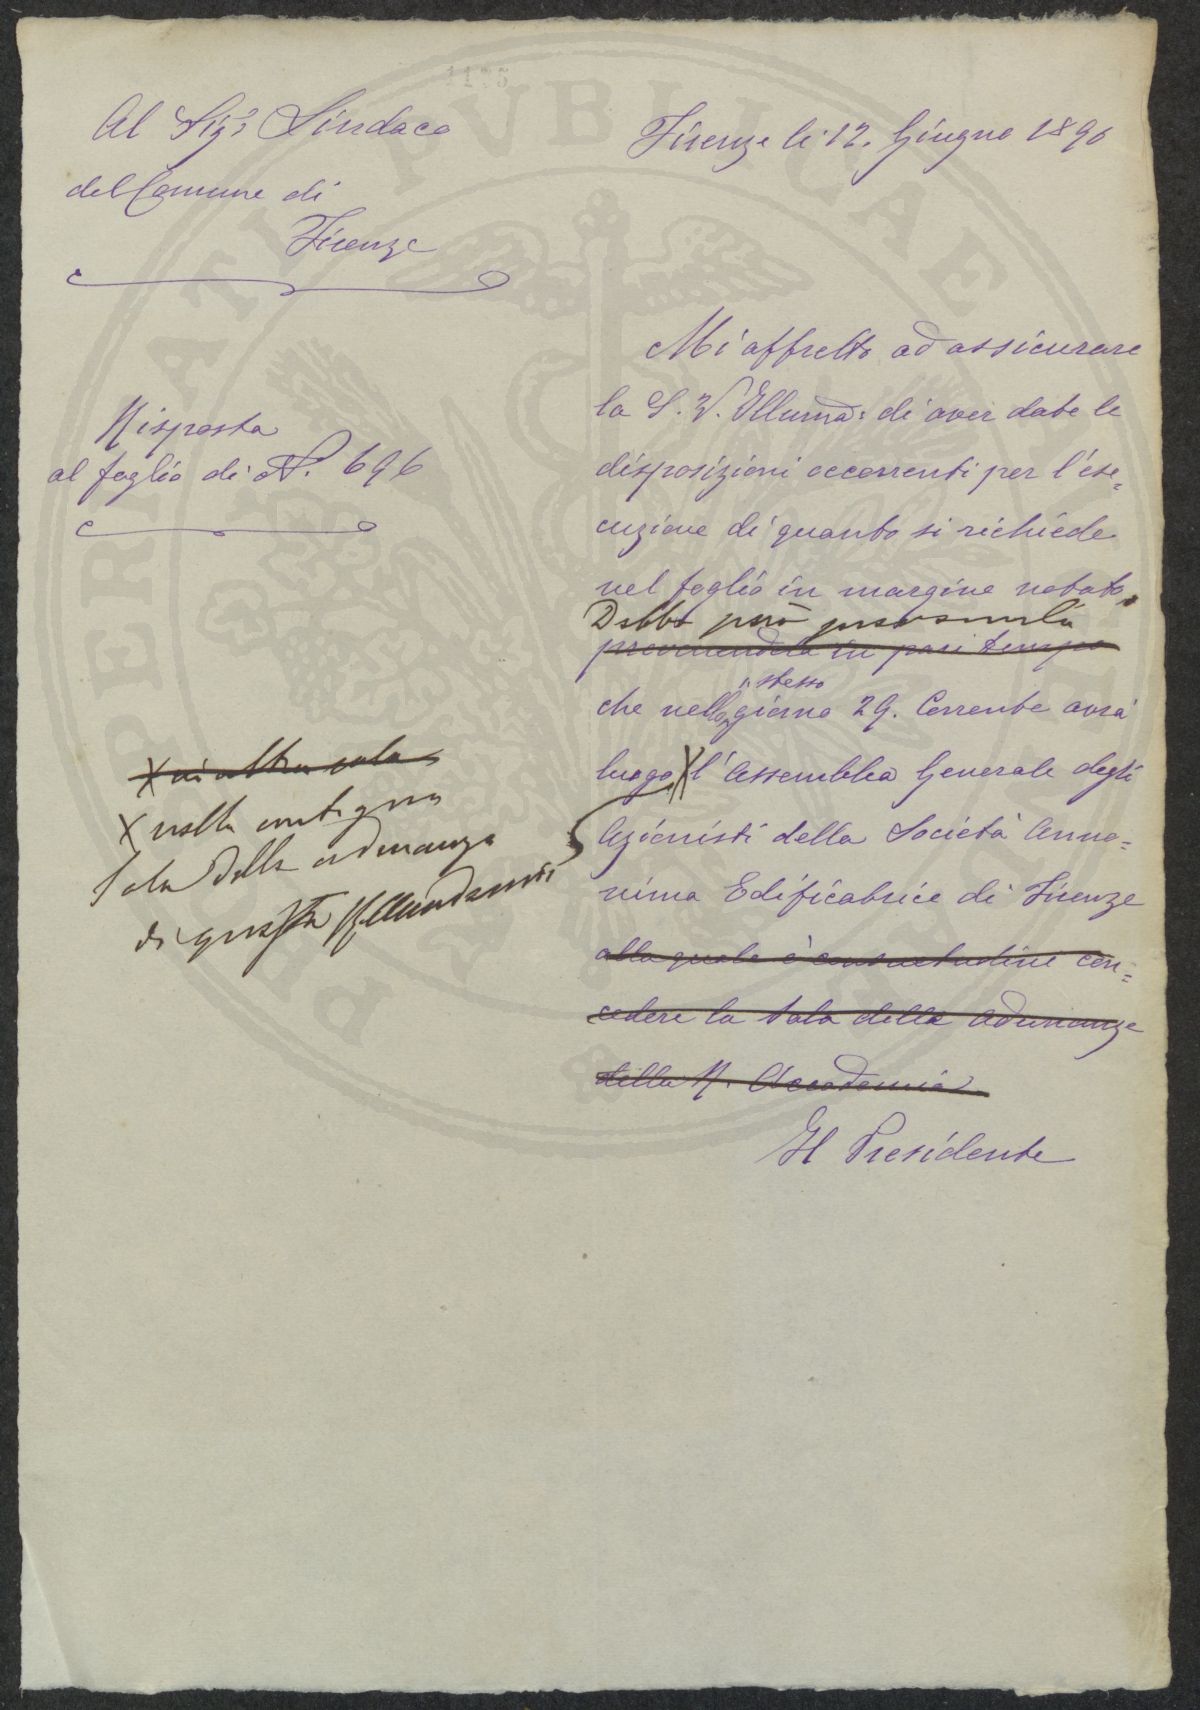 Al Sig.r Sindaco
del Comune di
Firenze
Firenze li 12. Giugno 1890
Risposta
al foglio di N. 696
Mi affretto ad assicurare
la S. V. Illuma: di aver date le
disposizioni occorrenti per l'ese=
cuzione di quanto si richiede
nel foglio in margine notato,
Debbo però prevenirla
prevenendola in pari tempo
stesso
che nello giorno 29. Corrente avrà
luogo X l'Assemblea Generale degli
Azionisti della Società Ano=
nima Edificatrice di Firenze
alla quale è consuetudine con=
cedere la Sala delle Adunanze
della R. Accademia.
Il Presidente
X in altra sala
X nella contigua
Sala delle adunanze
di questa R. Accademia